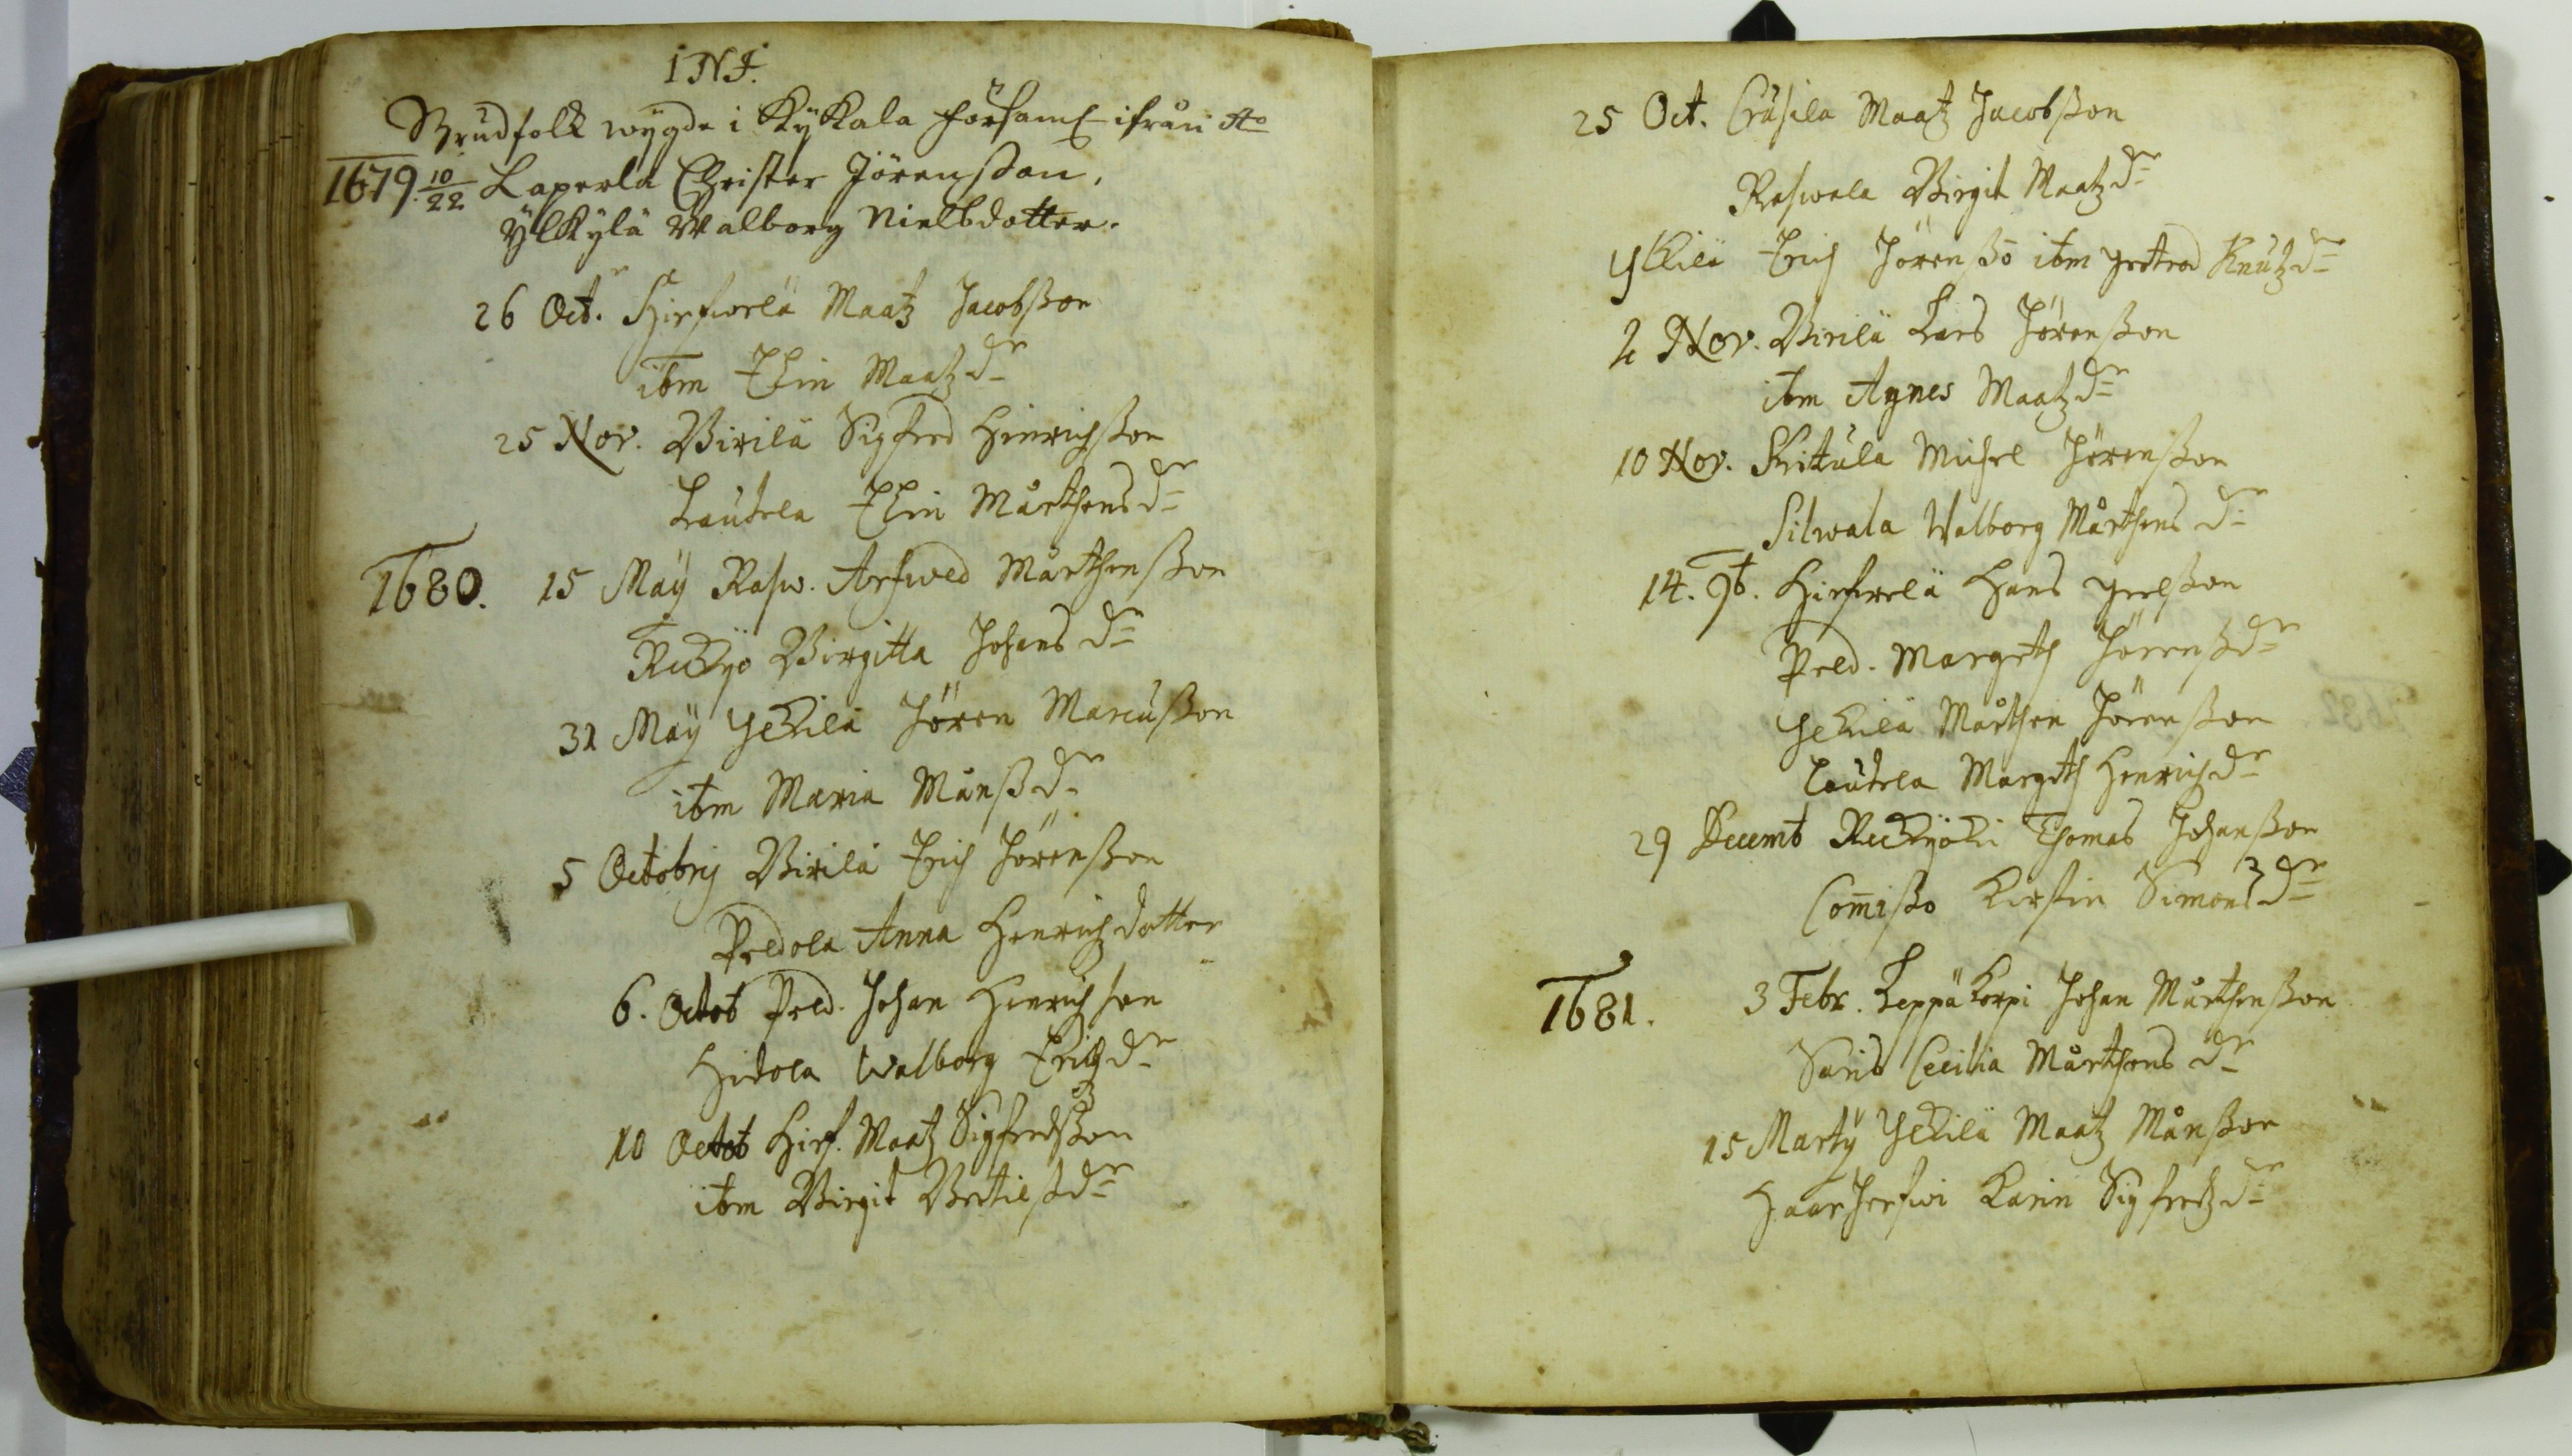 I N J.
Brudfolk wygde i Kykala församl ifrån Ao
1679. 10/22 Laperla Christer Jörensson.
Ylkylä Walborg Nielsdotter.
26 Oct. Hirfwelä Maatz Jacobsson
ibm Elin Maatz dr
25 Nov. Birilä Sigfred Hinrichsson
Lautela Elin Mårthens dr
1680. 15 Maÿ Rasw. Arfwed Mårthensson
Birgitta Johans dr
31 Maÿ Yckilä Jören Marcusson
ibm Maria Månss dr
5 Octobrij Birilä Erich Jörensson
Peldola Anna Henrichz dotter
6. Octob Peld. Johan Henrichson
Hidola Walborg Erichz dr
10 Octob Hirf. Maatz Sigfredsson
ibm Birgit Bertilss dr
25 Oct. Maatz Jacobsson
Raswala Birgit Maatz dr
Erich Jörensso ibm Knutz dr
2 Nov. Birilä Lars Jörensson
ibm Agnes Maatz dr
10 Nov. Michel Jörensson
Silwala Walborg Mårthens dr
14. 9b. Hirfwelä Hans
Peld. Margeth Jörenss dr
Yckilä Mårthen Jörensson
Lautela Margeth Henrichz dr
29 Decemb Reckyöki Thomas Johansson
Comisso Kirstin Simons dr
1681. 3 Febr. Leppäkorpi Johan Mårthensson
Saris Cecilia Mårthens dr
15 Martÿ Yckilä Maatz Månsson
Haarjerfwi Karin Sigfredz dr